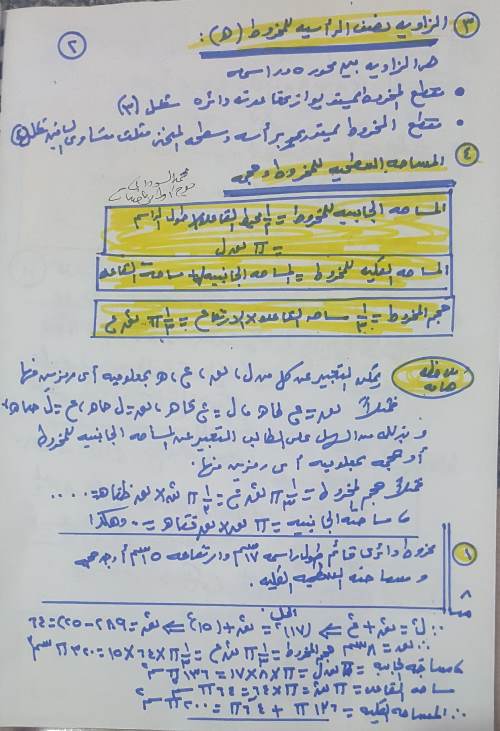 ٢
٣ الزاويه نصف الرأسيه للمخروط (هـ) :
هى الزاويه بين محوره وراسمه
• مقطع المخروط بمستو يوازى قاعدته دائره شكل (٣)
• مقطع المخروط بمستو يمر برأسه وسطحه المنحنى مثلث متساوى الساقين شكل (٤)
٤ المساحه السطحيه للمخروط وحجمه
المساحه الجانبيه للمخروط = ١/٢ محيط القاعده × طول الراسم
= π نق ل
المساحه الكليه للمخروط = المساحه الجانبيه + مساحة القاعده
حجم المخروط = ١/٣ مساحه القاعده × الارتفاع = ١/٣ π نق² ع
ملاحظه هامه
يمكن التعبير عن كل من ل ، نق ، ع ، هـ بمعلوميه أى رمزين منها
فمثلاً نق = ع طاهـ ، ل = ع قاهـ ، نق = ل جاهـ ، ع = ل جتاهـ
وبذلك من السهل على الطالب التعبير عن المساحه الجانبيه للمخروط
أو حجمه بمعلوميه أى رمزين منها .
فمثلاً حجم المخروط = ١/٣ π نق² ع = ١/٣ π نق² × نق ظتاهـ = ....
، مساحته الجانبيه = π نق × نق قتاهـ = .. وهكذا
١ مخروط دائرى قائم طول راسمه ١٧سم وارتفاعه ١٥سم أوجد حجمه
ومساحته السطحيه الكليه .
الحل
∵ ل² = نق² + ع² ⇐ (١٧)² = نق² + (١٥)² ⇐ نق² = ٢٨٩ - ٢٢٥ = ٦٤
∴ نق = ٨سم حجم المخروط = ١/٣ π نق² ع = ١/٣ π × ٦٤ × ١٥ = ٣٢٠ π سم³
، مساحته الجانبيه = π نق ل = π × ٨ × ١٧ = ١٣٦ π سم²
مساحه القاعده = π نق² = π × ٦٤ = ٦٤ π سم²
∴ المساحه الكليه = ١٣٦ π + ٦٤ π = ٢٠٠ π سم²